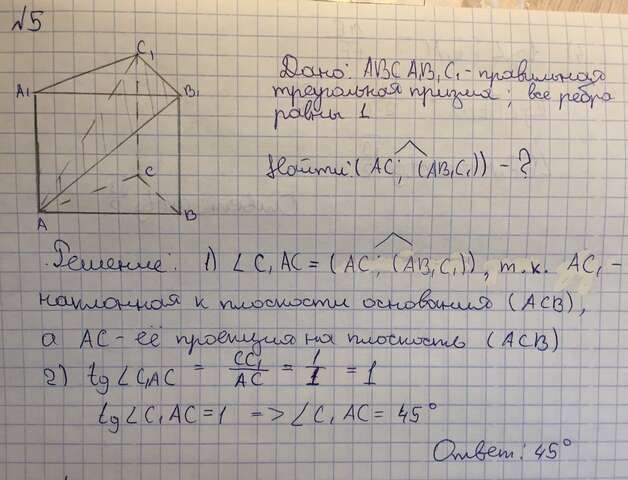 №5
C₁
A₁
B₁
C
A
B
Дано: ABCA₁B₁C₁ - правильная
треугольная призма; все ребра
равны 1
Найти: (AC; (AB₁C₁)) - ?
Решение: 1) ∠C₁AC = (AC; (AB₁C₁)), т.к. AC₁ -
наклонная к плоскости основания (ACB),
а AC - её проекция на плоскость (ACB)
2) tg∠C₁AC = CC₁/AC = 1/1 = 1
tg∠C₁AC = 1 => ∠C₁AC = 45°
Ответ: 45°